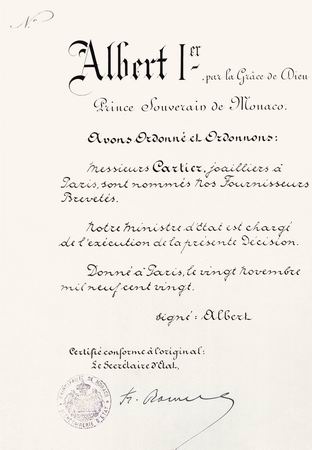 N°
Albert Ier, par la Grâce de Dieu
Prince Souverain de Monaco.
Avons Ordonné et Ordonnons:
Messieurs Cartier, joailliers à
Paris, sont nommés Nos Fournisseurs
Brevetés.
Notre Ministre d'Etat est chargé
de l'exécution de la présente Décision.
Donné à Paris, le vingt Novembre
mil neuf cent vingt.
signé: Albert
Certifié conforme à l'original:
Le Secrétaire d'Etat,